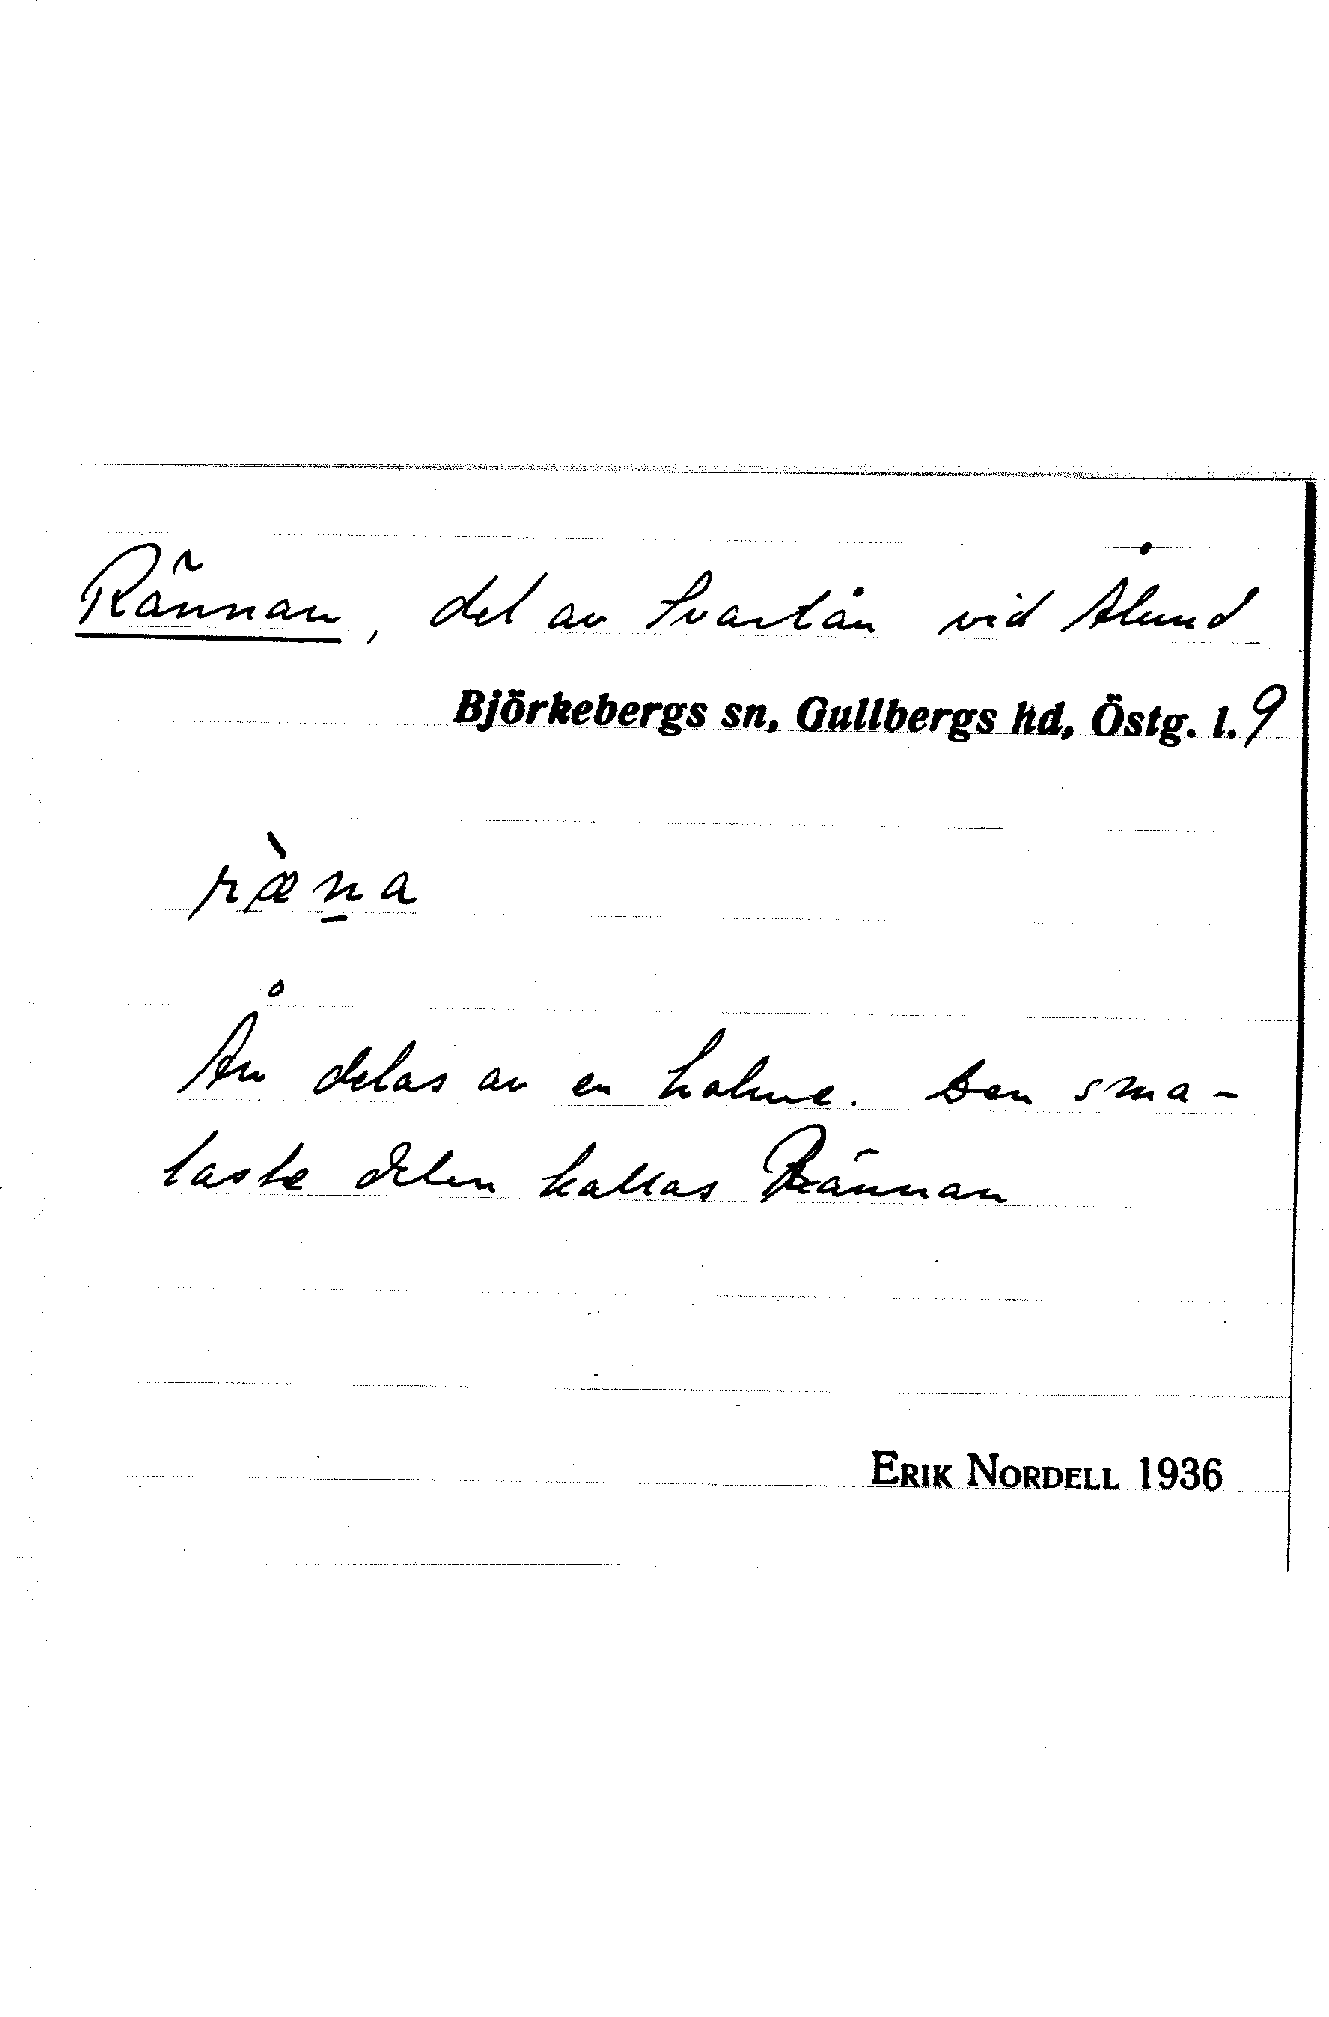 Rännan, del av Svartån vid Ålund
Björkebergs sn, Gullbergs hd, Östg. l. 9
ræ̀n̲a
Ån delas av en holme. Den sma-
laste delen kallas Rännan
ERIK NORDELL 1936